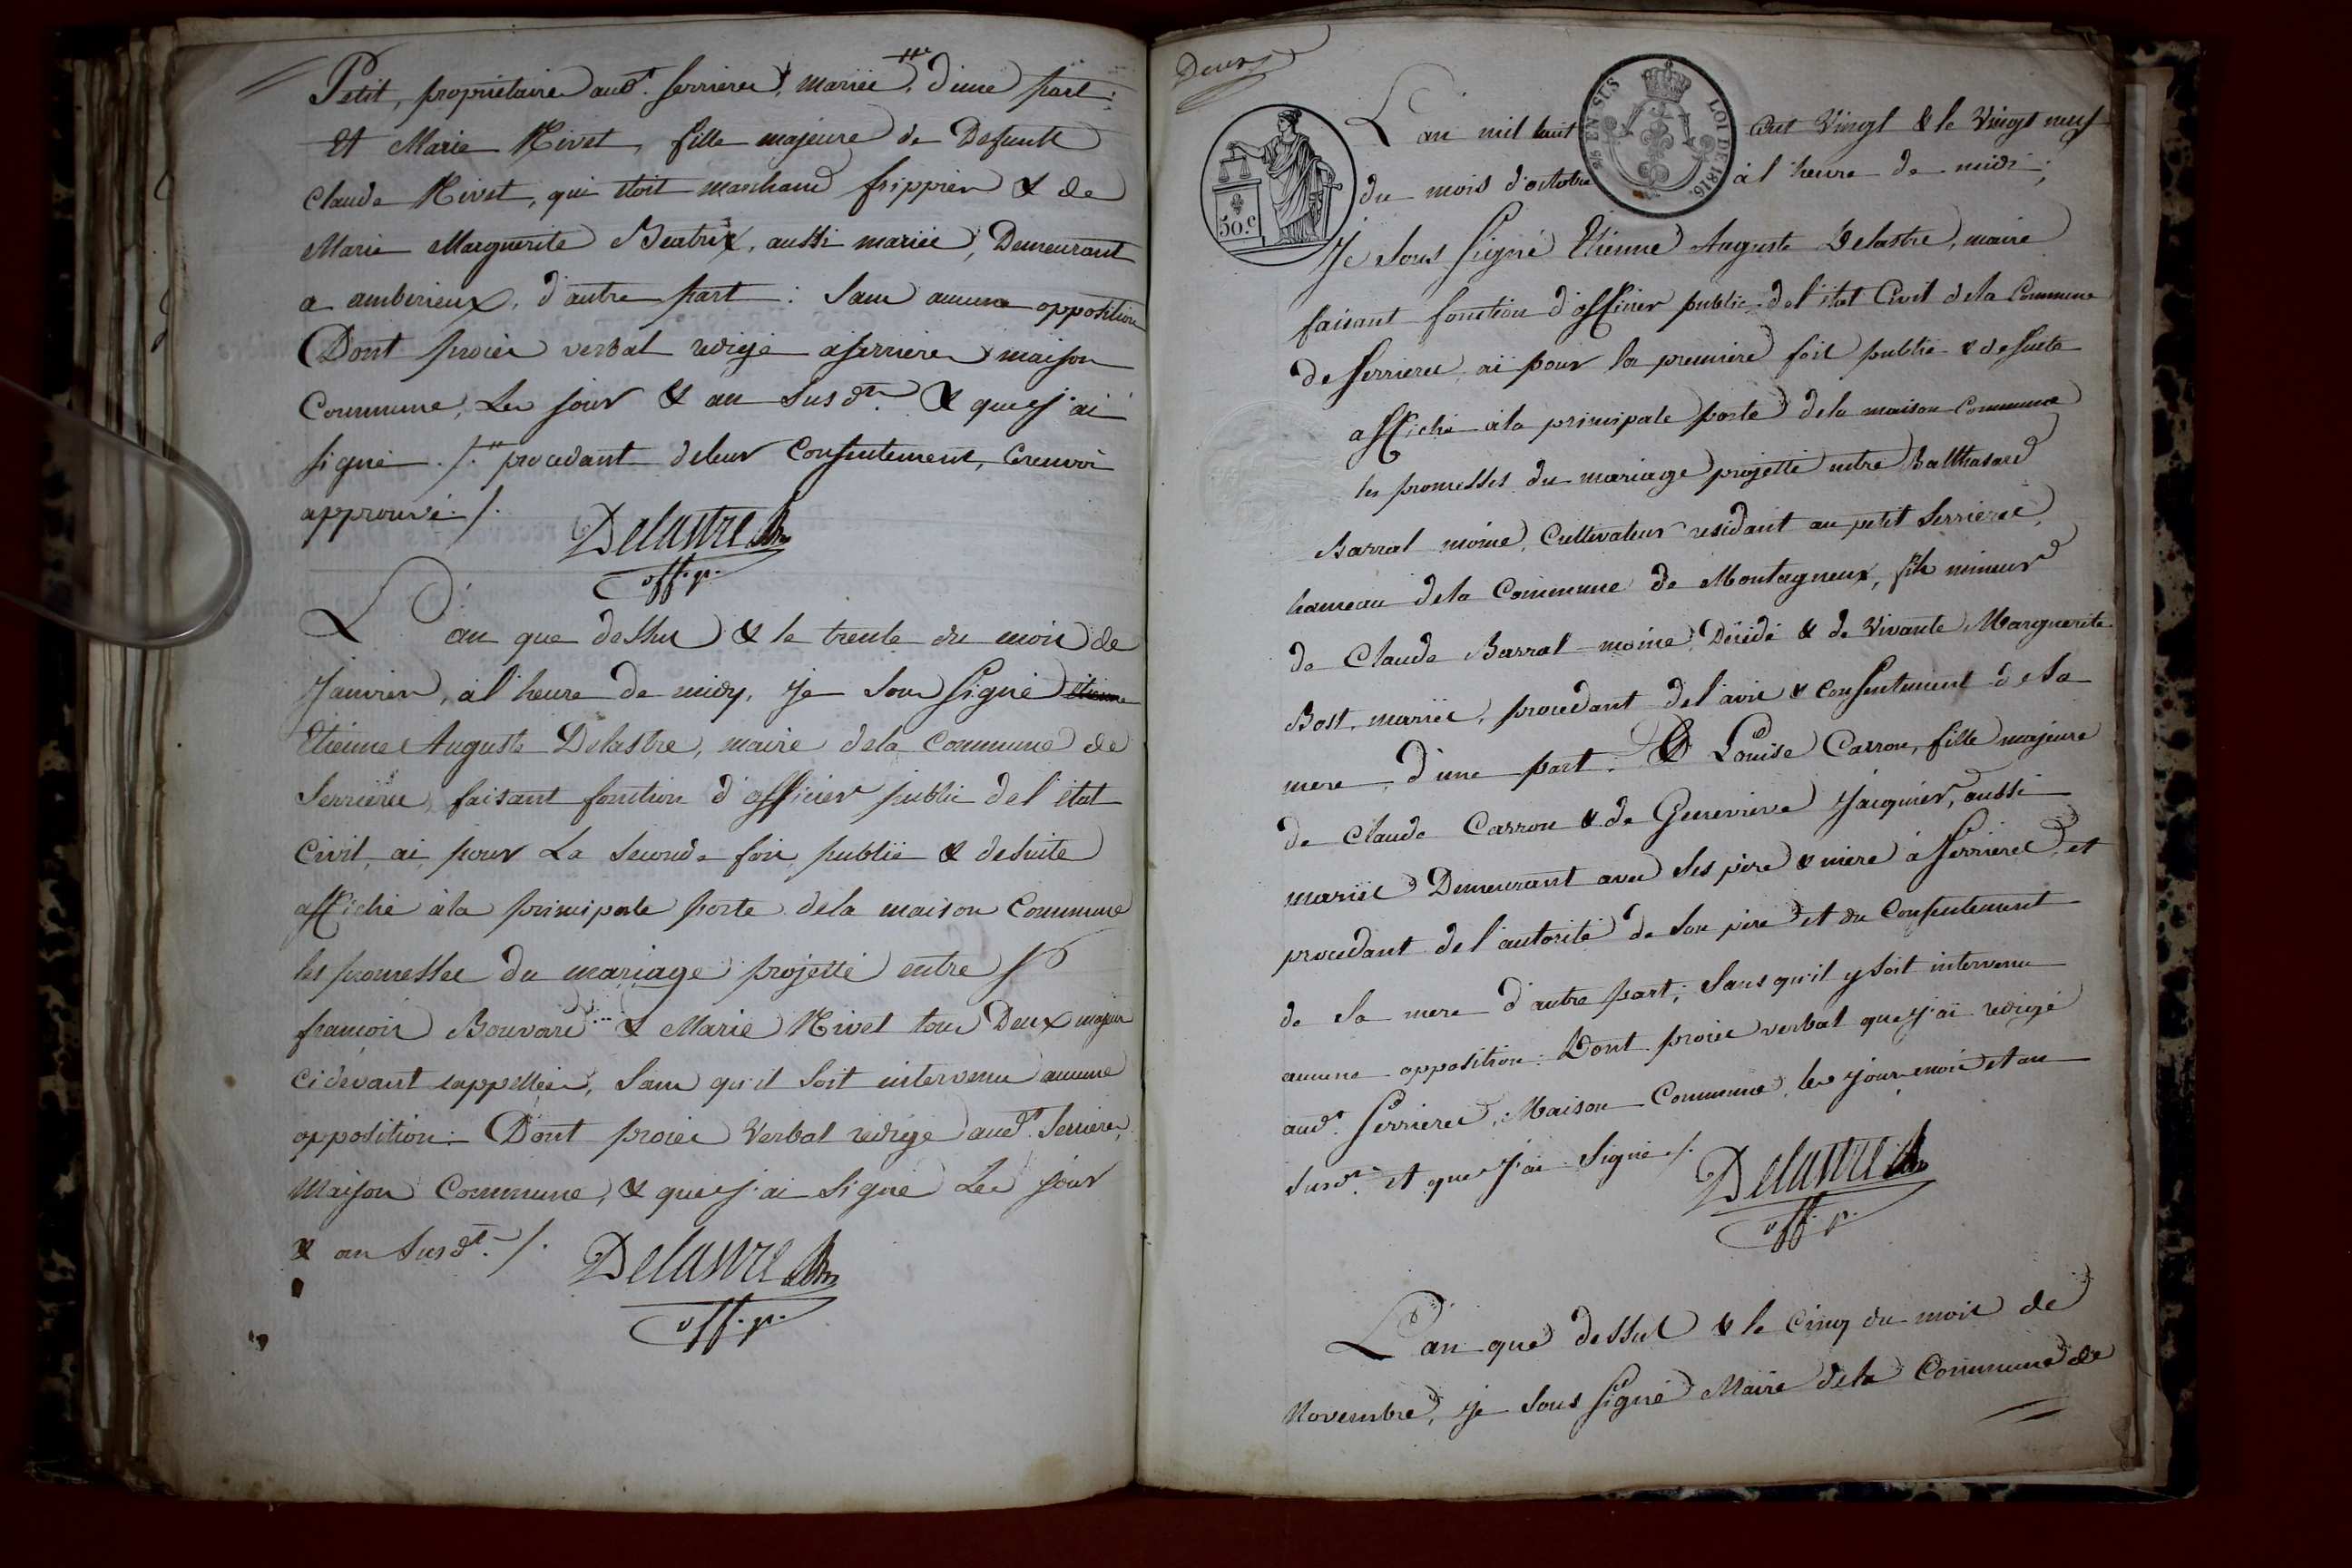 Petit, proprietaire aud.t Serrieres, mariés, d'une part:
Et Marie Nivet, fille majeure de Defunt
Claude Nivet, qui étoit marchand frippier & de
Marie Marguerite Beatrix, aussi mariés, Demeurant
a amberieux, d'autre part: Sans aucune opposition
Dont procès verbal redigé a serrieres maison
Commune, Les jour & an susd.ts & que j'ai
signé ./. procedant de leur Consentement, Crenvoi
approuvé ./.
Delastre
off. p.
L'an que dessus & le trente du mois de
Janvier, à l'heure de midy, Je sous signé etienne
Etienne Auguste Delastre, maire dela Commune de
Serrieres, faisant fonction d'officier public del'état
Civil, ai pour La seconde fois publié & desuite
affiché àla principale porte dela maison Commune
les promesses du mariage projetté entre S.
françois Bouvard & Marie Nivet tous Deux majeurs
cidevant rappellés, sans qu'il soit intervenu aucune
opposition: Dont procès Verbal redigé aud.t Serrieres,
Maison Commune, & que j'ai signé Les jour
& an susd.ts ./.
Delastre
off. p.
Deux
50.c
25 EN SUS LOI DE 1816.
L'an mil huit cent Vingt & le Vingt neuf
du mois d'octobre à l'heure de midi;
Je sous signé Etienne Auguste Delastre, maire
faisant fonction d'officier public del'état Civil dela Commune
de Serrieres, ai pour la premiere fois publié & desuite
affiché àla principale porte dela maison Commune
les promesses du mariage projetté entre Balthasard
Barral moine, Cultivateur residant au petit Serrieres,
hameau dela Commune de Montagneux, fils mineur
de Claude Barral-moine Décédé & de Vivante Marguerite
Bost, mariés, procedant del'avis & consentement de sa
mere, d'une part: & Louise Carron, fille majeure
de Claude Carron & de Genevieve Jacquier, aussi
mariés Demeurant avec ses père & mere à Serrieres, et
procedant del'autorité de son père et du Consentement
de sa mere d'autre part; Sans qu'il y soit intervenu
aucune opposition: Dont procès verbal que j'ai redigé
aud.t Serrieres, Maison Commune, les jour mois et an
susd.ts et que j'ai signé ./.
Delastre
off. p.
L'an que dessus & le Cinq du mois de
Novembre, je sous signé Maire dela Commune de